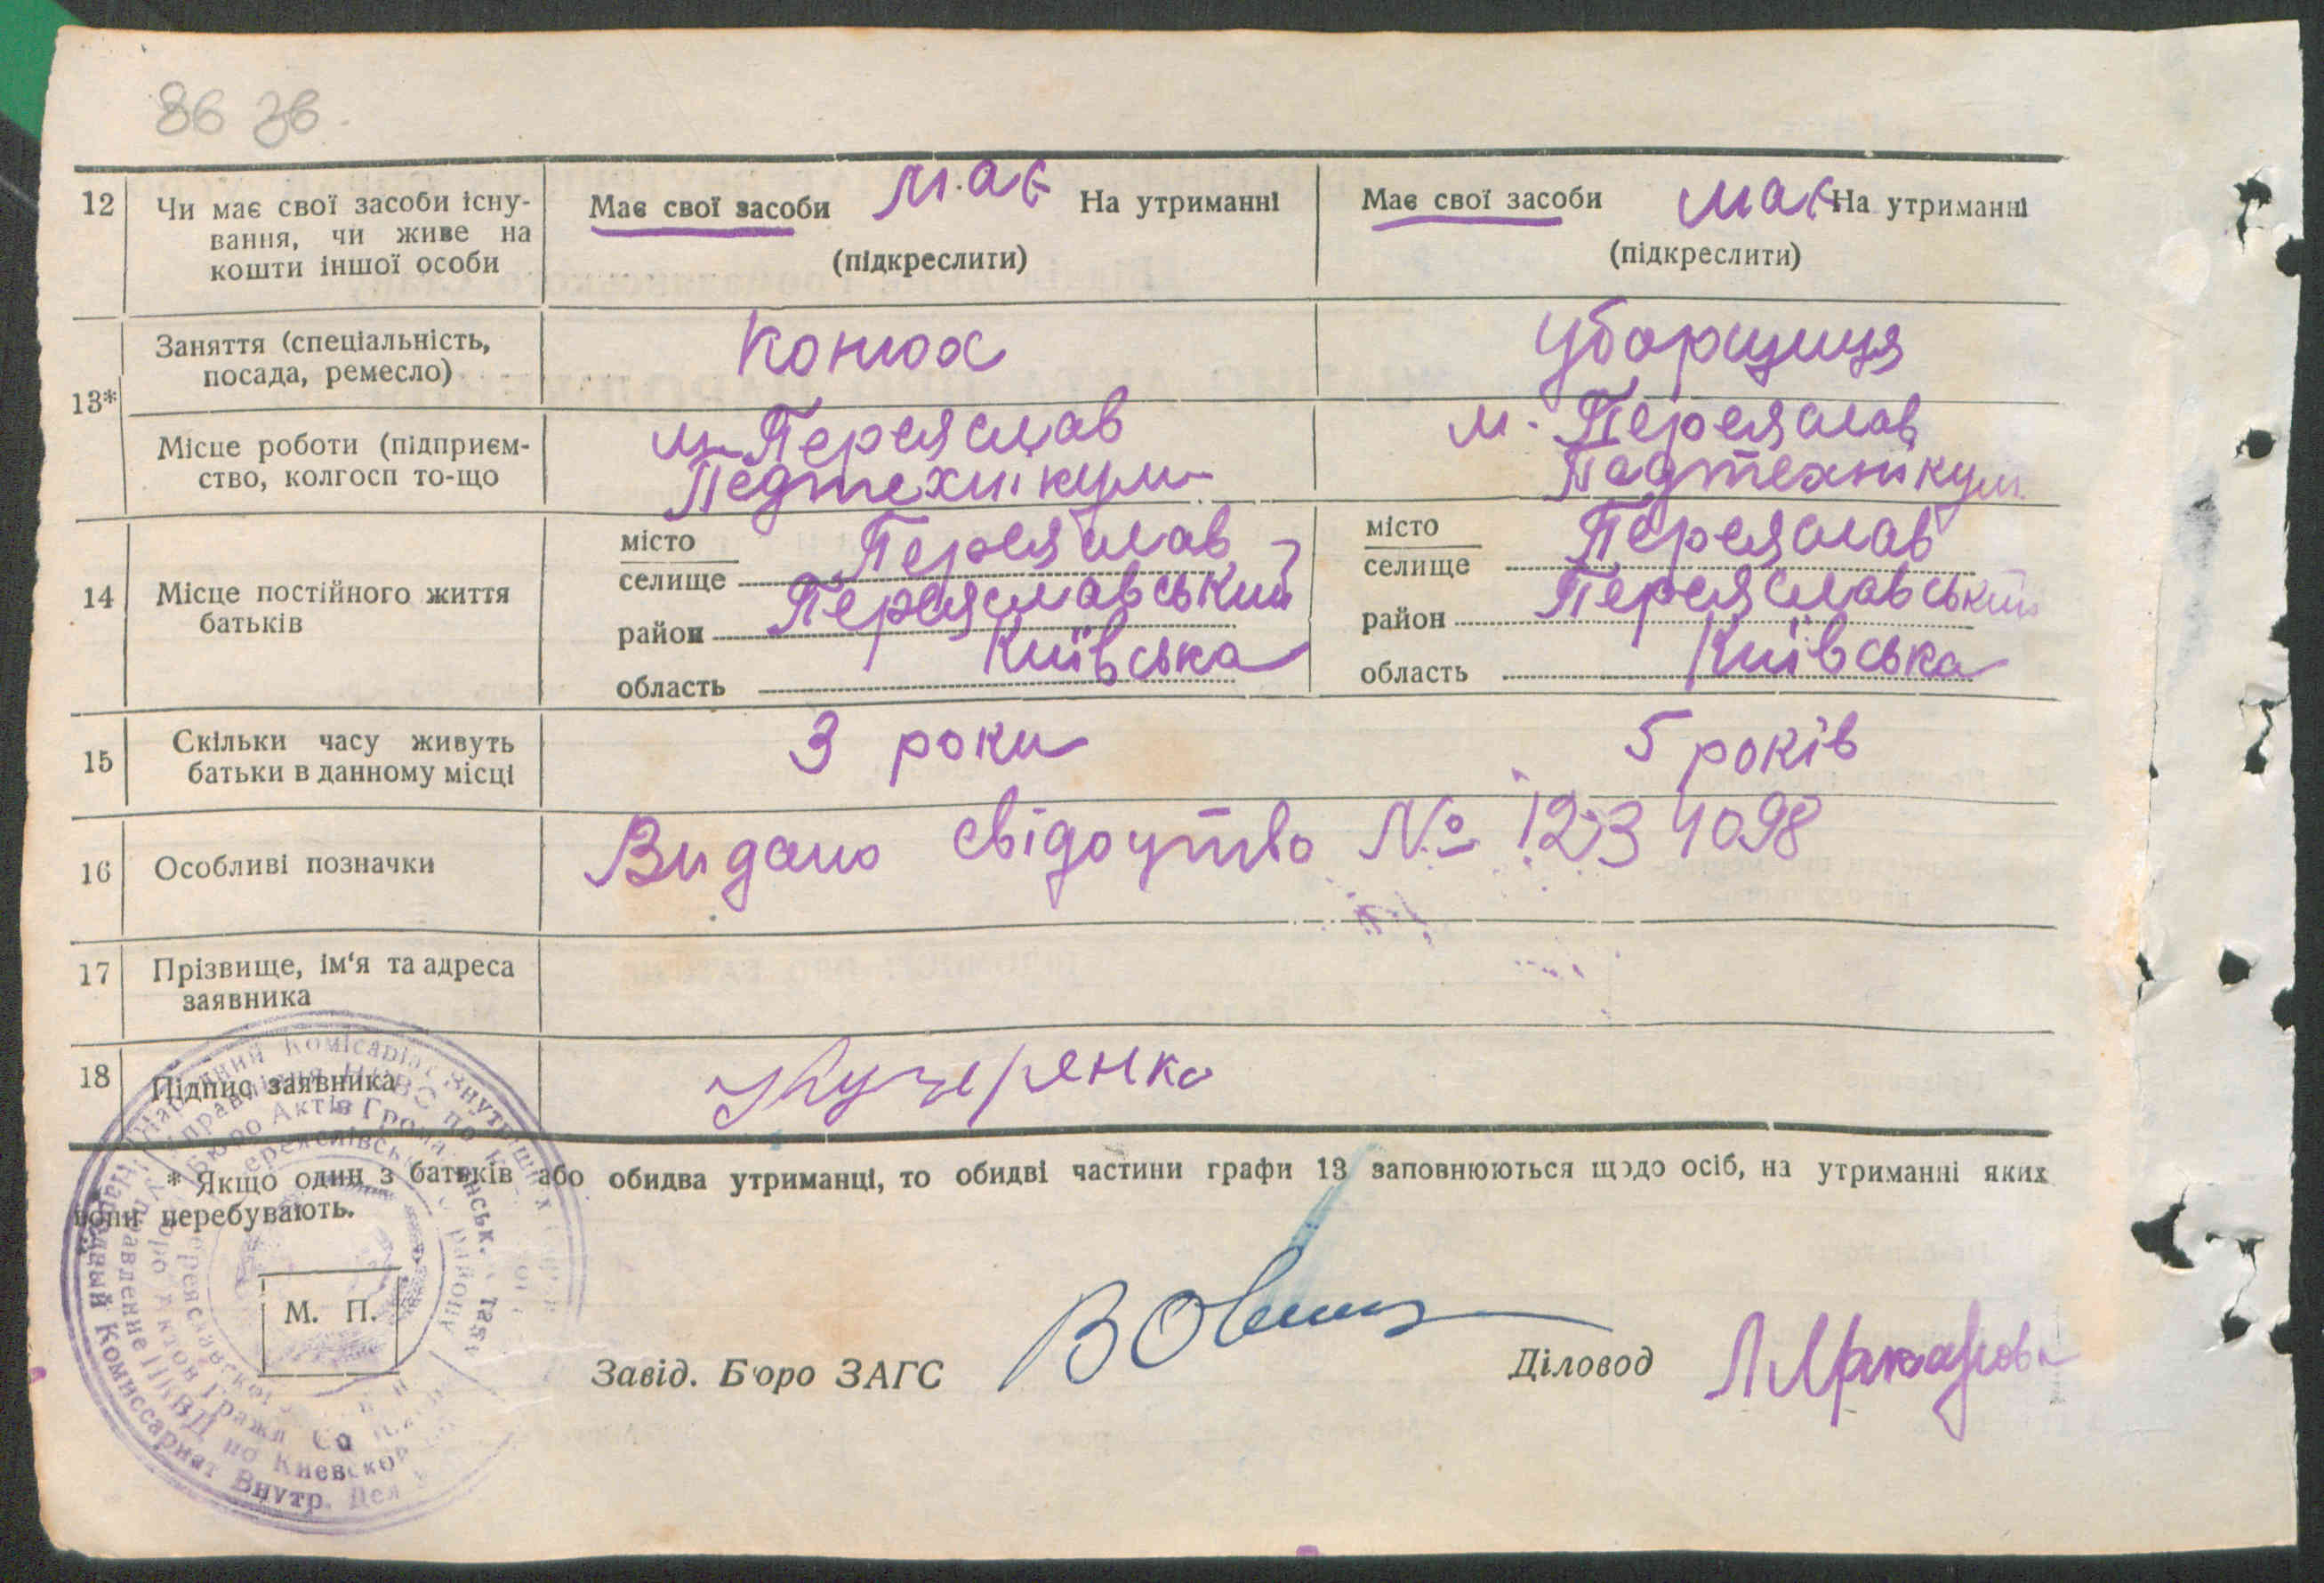 86 зв.
12 Чи має свої засоби існу-
вання, чи живе на
кошти іншої особи
Має свої засоби має На утриманні
(підкреслити)
Має свої засоби має На утриманні
(підкреслити)
13*
Заняття (спеціальність,
посада, ремесло)
Конюх
Уборщиця
Місце роботи (підприєм-
ство, колгосп то-що
м. Переяслав
Педтехнікум
м. Переяслав
Педтехнікум
14 Місце постійного життя
батьків
місто
селище Переяслав
район Переяславський
область Київська
місто
селище Переяслав
район Переяславський
область Київська
15 Скільки часу живуть
батьки в данному місці
3 роки
5 років
16 Особливі позначки
Видано свідоцтво № 1234098
17 Прізвище, ім'я та адреса
заявника
18 Підпис заявника
Кучеренко
* Якщо один з батьків або обидва утриманці, то обидві частини графи 13 заповнюються щодо осіб, на утриманні яких
вони перебувають.
М. П.
Завід. Бюро ЗАГС
Діловод
Народний Комісаріат Внутрішніх
Бюро Актів Громадянськ.
Комиссариат Внутр. Дел
по Киевской